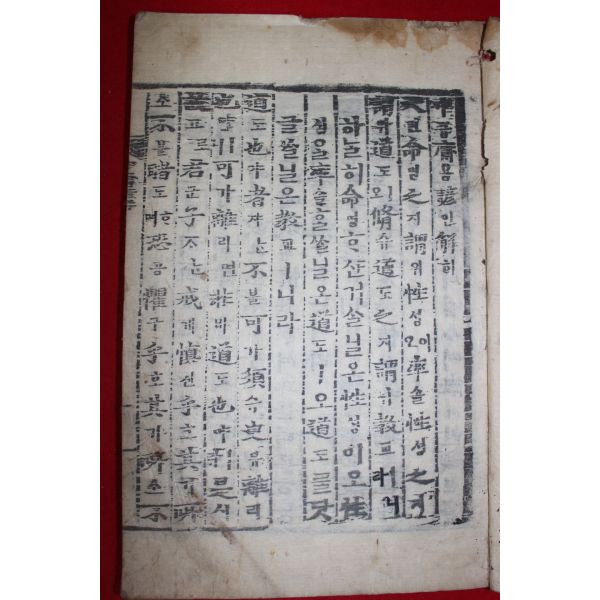 中듕庸용諺언解ᄒᆡ
天텬命명之지謂위性셩이오率솔性셩之지
謂위道도오修슈道도之지謂위敎교ㅣ니라
하ᄂᆞᆯ히命명ᄒᆞ산거슬닐온性셩이오性
셩을率솔홈을닐온道도ㅣ오道도ᄅᆞᆯ닷
글슬닐온敎교ㅣ니라
道도也야者쟈ᄂᆞᆫ不블可가須슈臾유離리
也야ㅣ니可가離리면非비道도也야ㅣ라是시
故고로君군子ᄌᆞᄂᆞᆫ戒계愼신乎호其기所
소不블睹도ᄒᆞ며恐공懼구乎호其기所소不